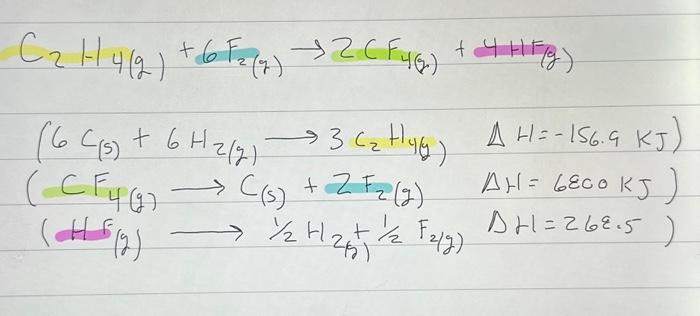 C₂H₄(g) + 6F₂(g) → 2CF₄(g) + 4HF(g)
(6 C(s) + 6 H₂(g) → 3 C₂H₄(g) ΔH = -156.9 KJ)
(CF₄(g) → C(s) + 2F₂(g) ΔH = 6800 KJ)
(HF(g) → ½ H₂(g) + ½ F₂(g) ΔH = 268.5)